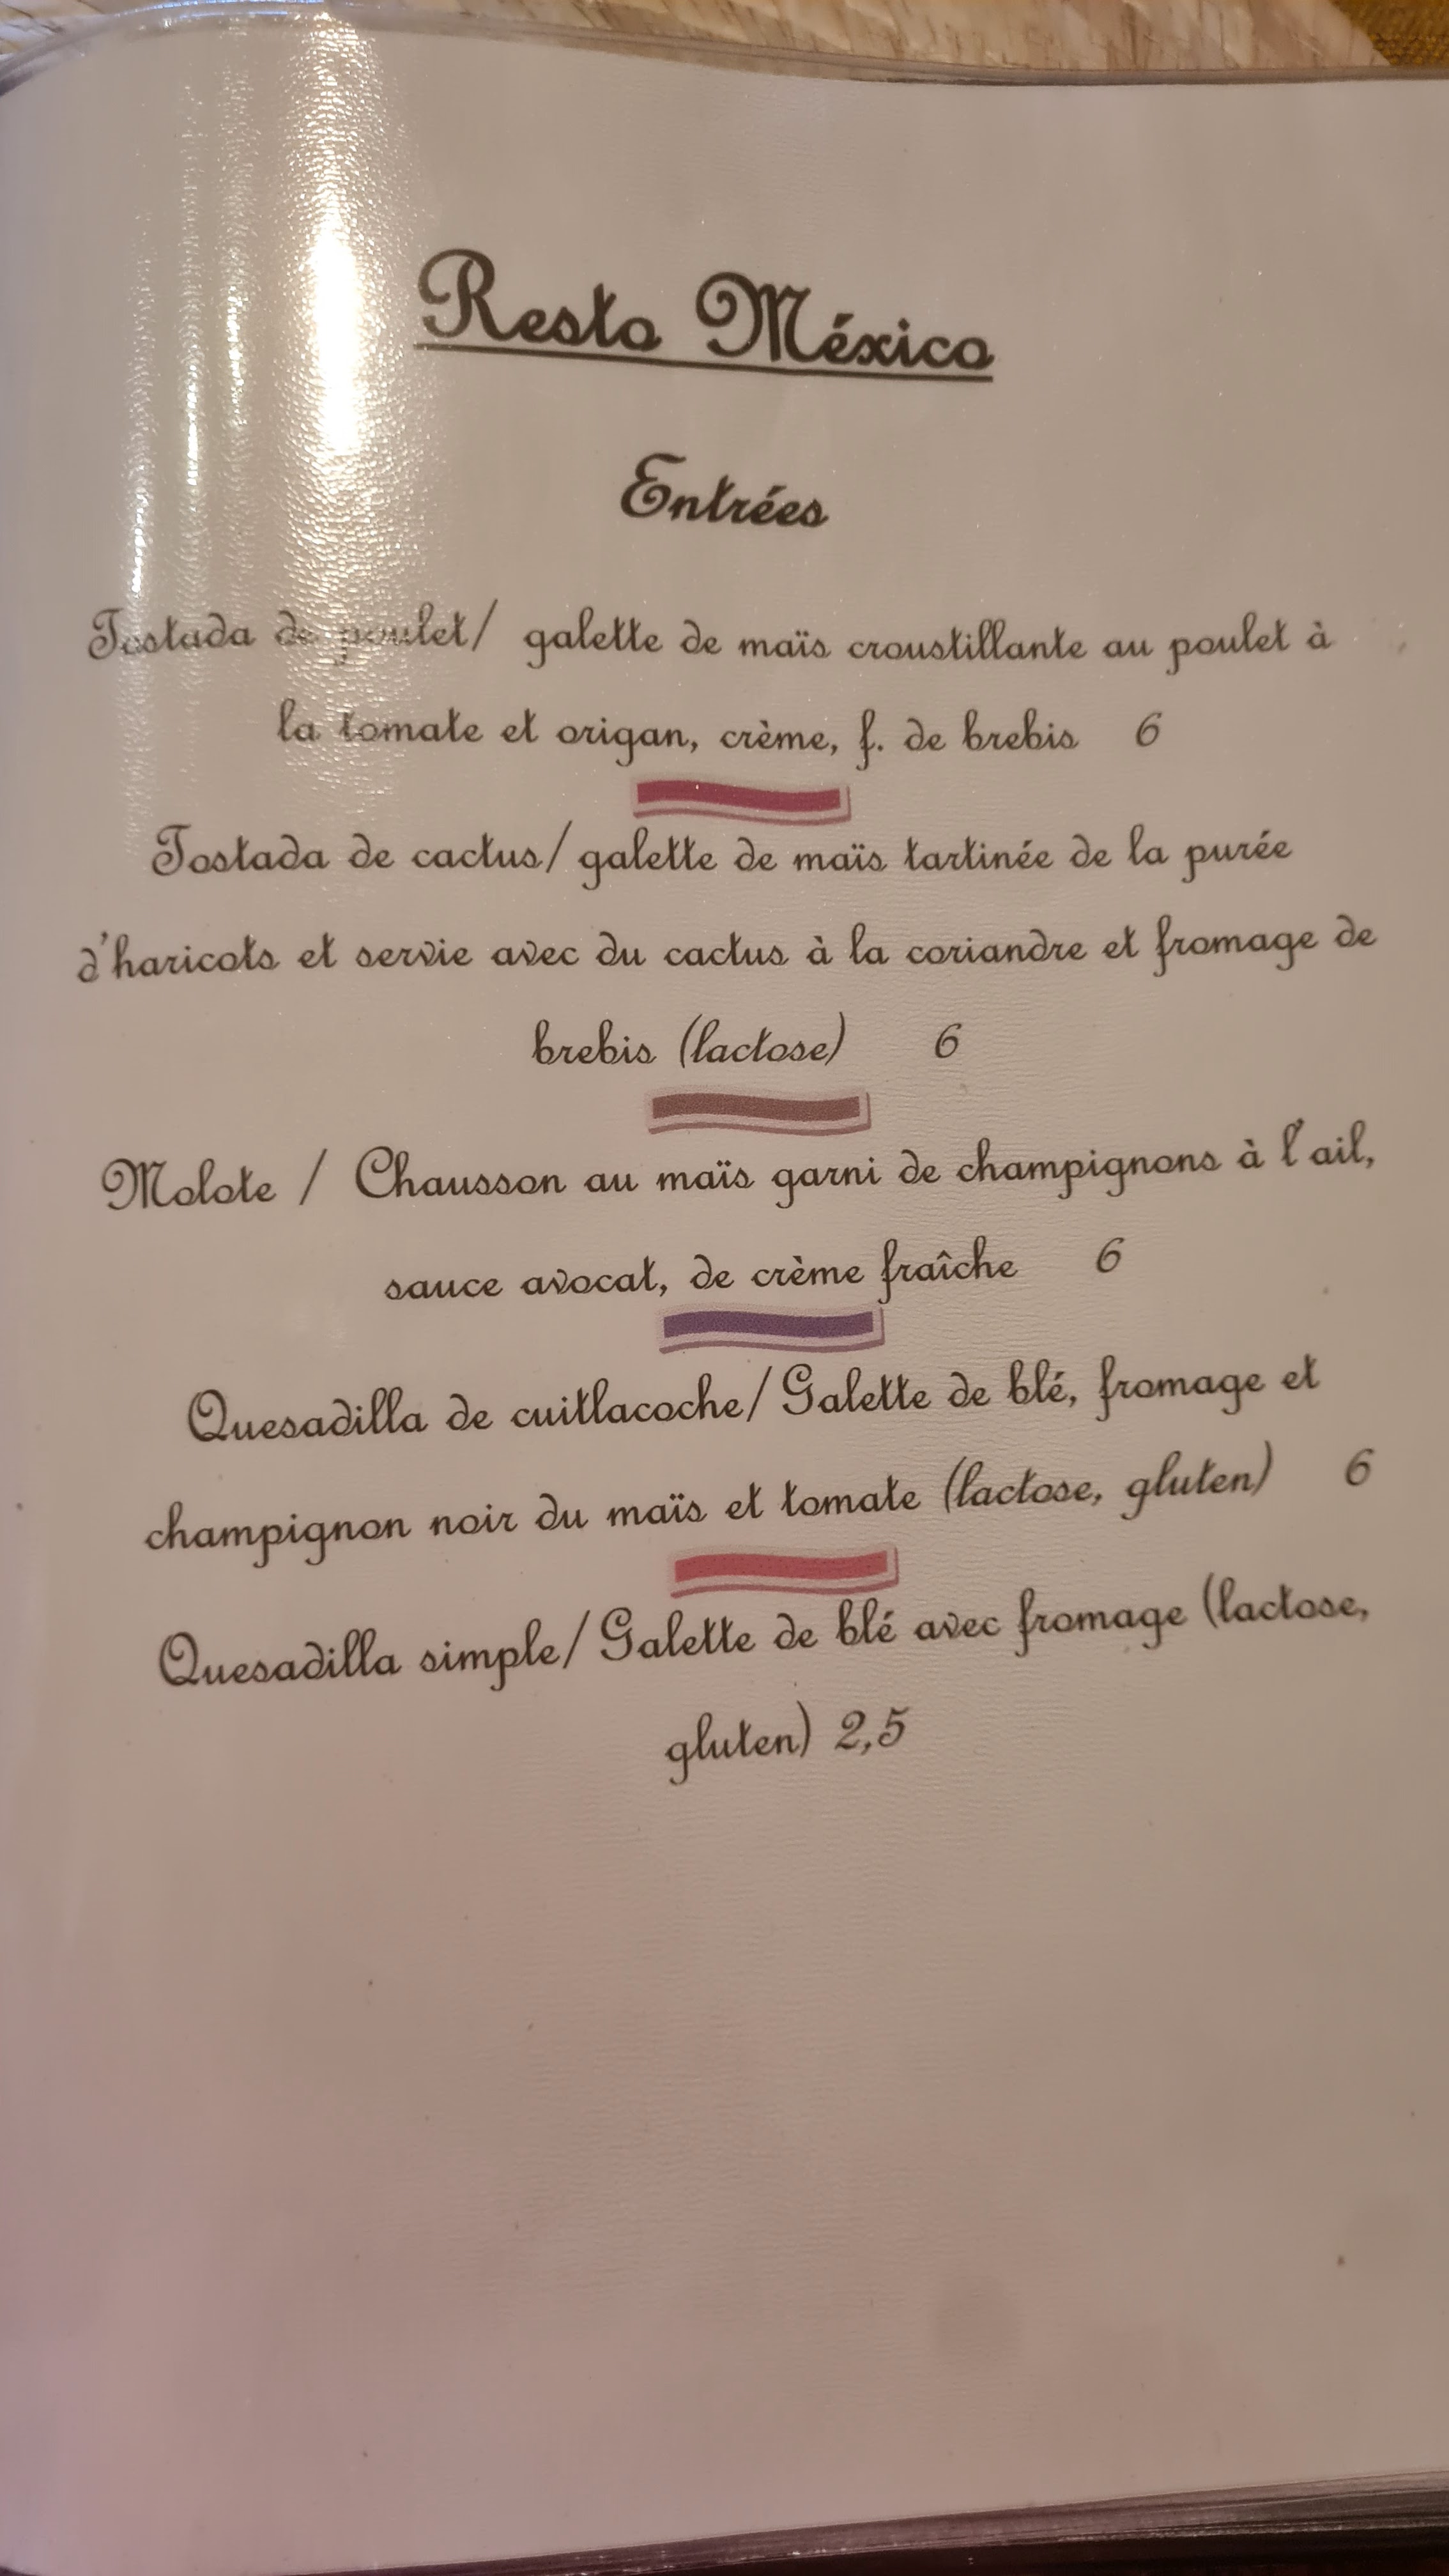 Resto México
Entrées
Tostada de poulet/ galette de maïs croustillante au poulet à
la tomate et origan, crème, f. de brebis 6
Tostada de cactus/ galette de maïs tartinée de la purée
d'haricots et servie avec du cactus à la coriandre et fromage de
brebis (lactose) 6
Molote / Chausson au maïs garni de champignons à l'ail,
sauce avocat, de crème fraîche 6
Quesadilla de cuitlacoche/ Galette de blé, fromage et
champignon noir du maïs et tomate (lactose, gluten) 6
Quesadilla simple/ Galette de blé avec fromage (lactose,
gluten) 2,5